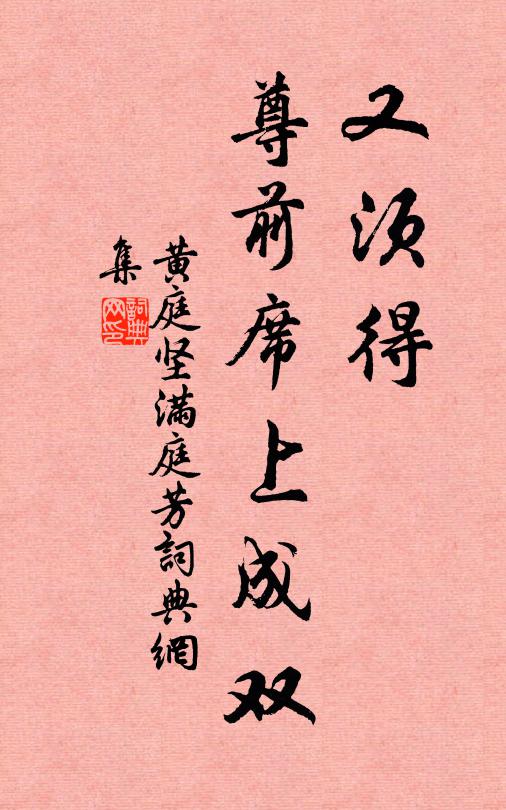 又须得
尊前席上成双
黄庭坚满庭芳詞典網
集
詞典网印